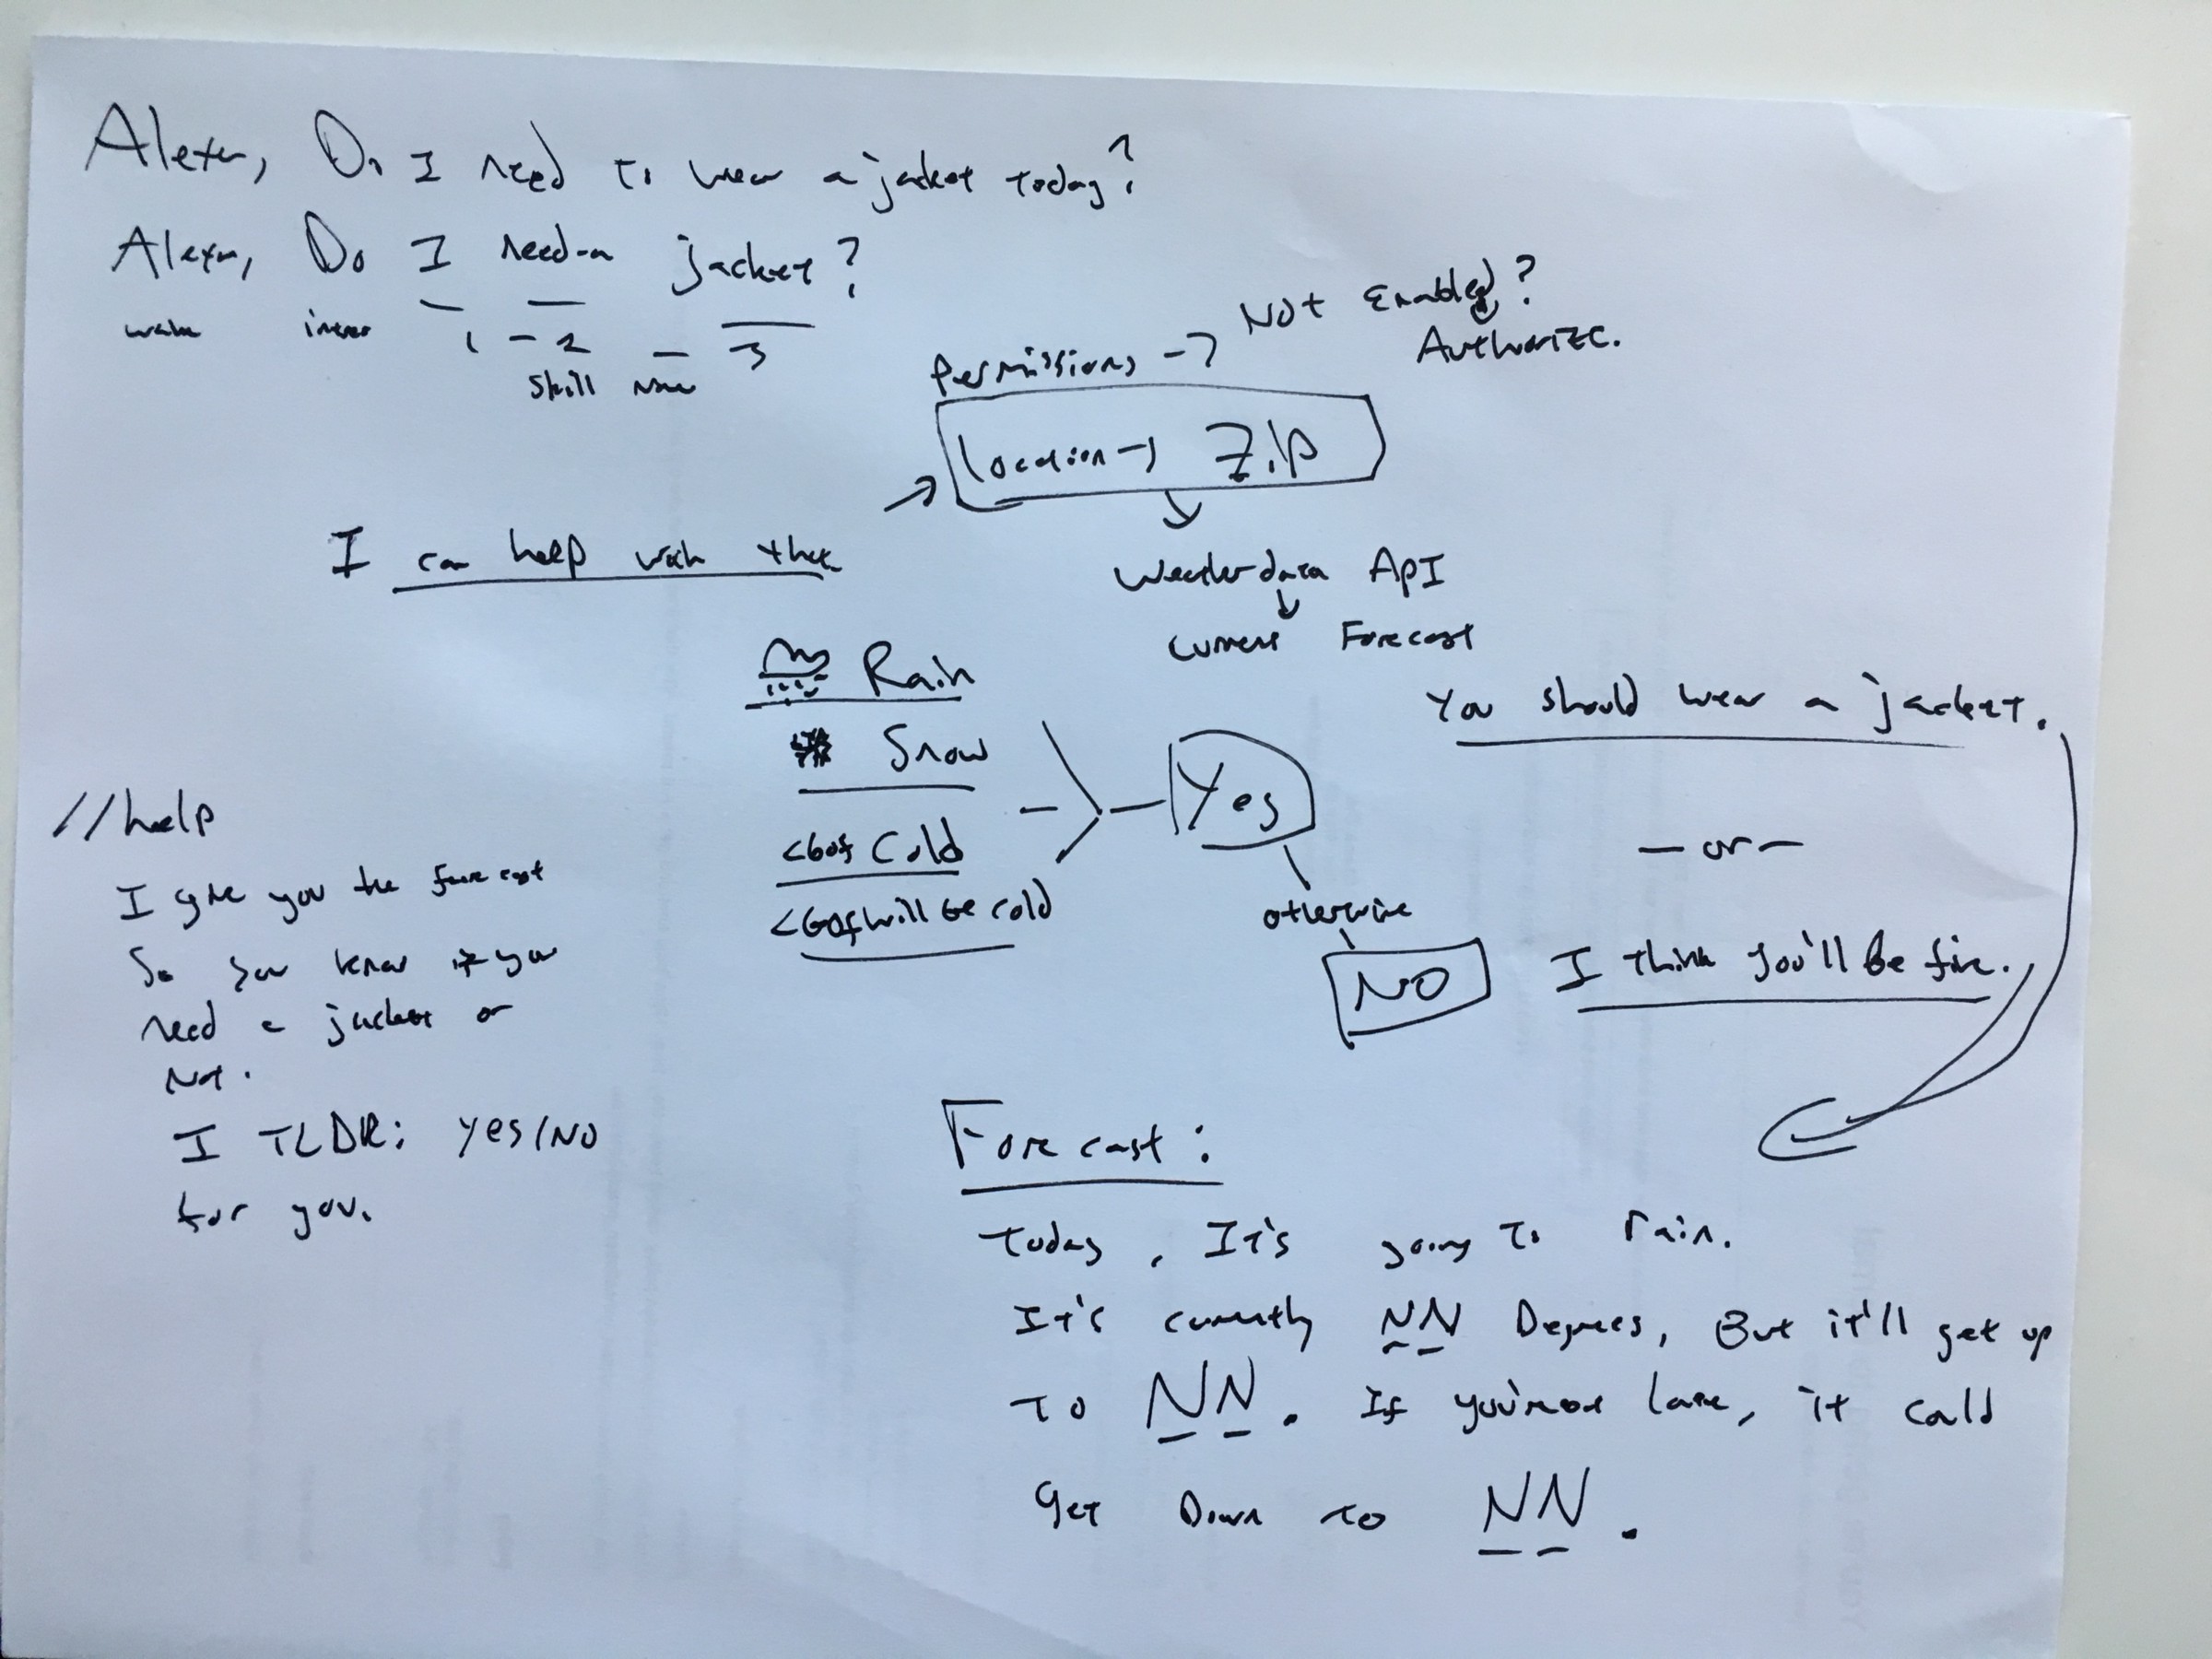 Alexa, Do I need to wear a jacket today?
Alexa, Do I need a jacket?
wake intent 1 - 2 - 3
Skill name
Not Enabled?
Authorize.
Permissions →
Location → Zip
I can help with that
Weather data API
current Forecast
Rain
Snow
<60f Cold
<60f will be cold
Yes
otherwise
NO
You should wear a jacket.
- or -
I think you'll be fine.
//help
I give you the forecast
So you know if you
need a jacket or
Not.
I TLDR; Yes/No
for you.
Forecast:
Today, It's going to rain.
It's currently NN Degrees, But it'll get up
to NN. If you're out late, it could
Get Down to NN.